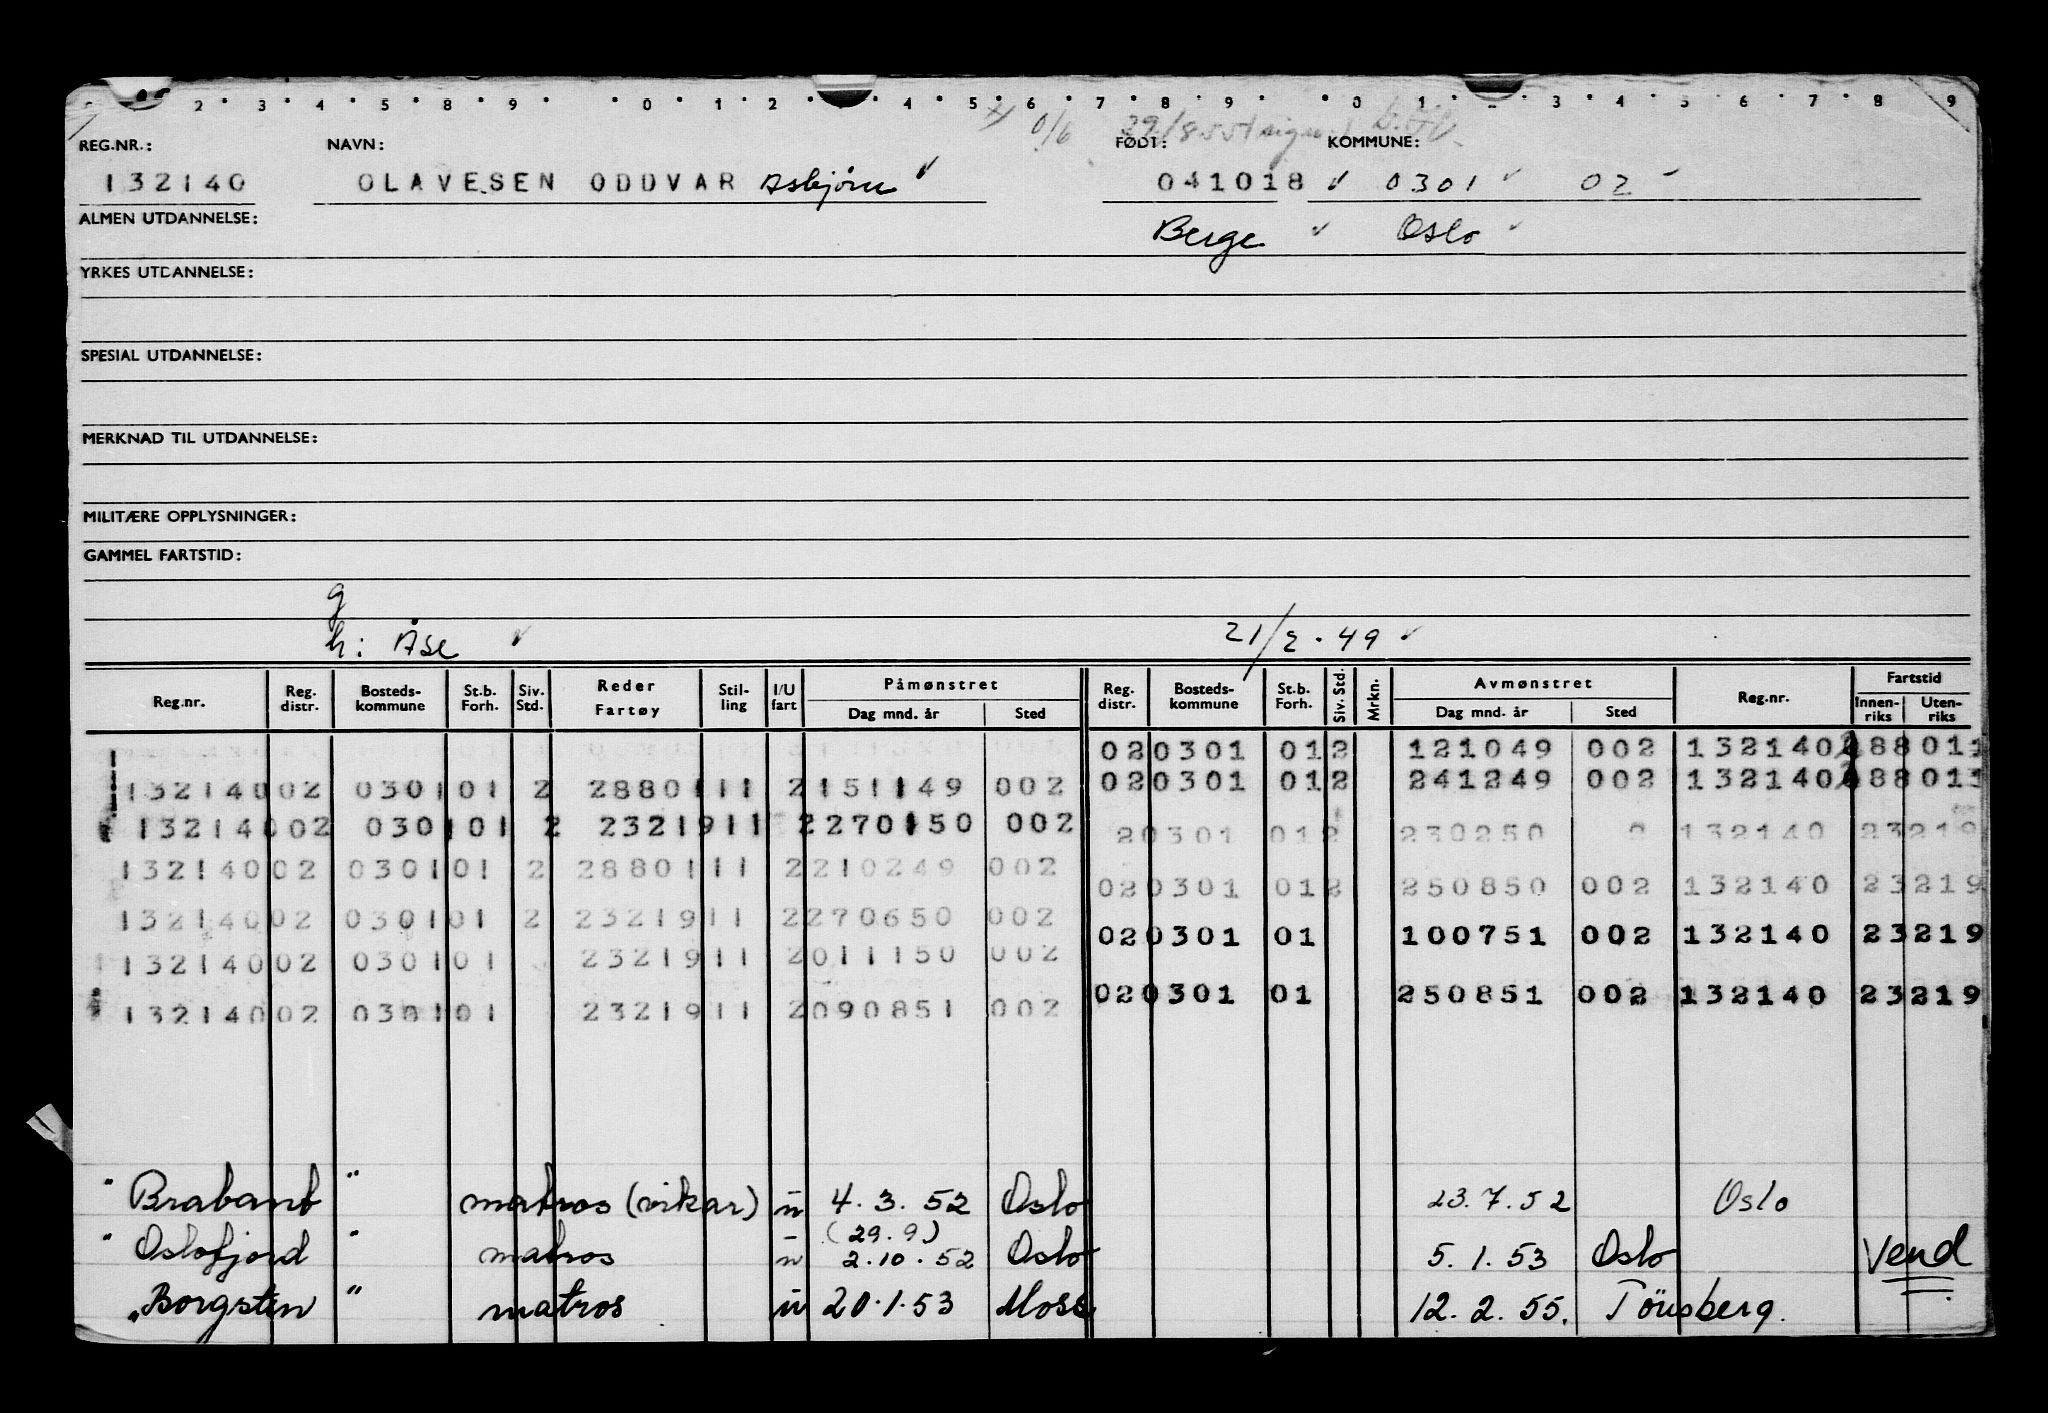 2 3 4 5 8 9 0 1 2 4 5 6 7 8 9 0 1 3 4 5 6 7 8 9
0/6 29/8 55
REG.NR.: NAVN: FØDT: KOMMUNE:
132140 OLAVESEN ODDVAR Asbjørn ✓ 041018 ✓ 0301 ✓ 02
ALMEN UTDANNELSE: Berge ✓ Oslo ✓
YRKES UTDANNELSE:
SPESIAL UTDANNELSE:
MERKNAD TIL UTDANNELSE:
MILITÆRE OPPLYSNINGER:
GAMMEL FARTSTID:
g
h: Åse ✓ 21/2.49 ✓
Reg.nr. Reg. distr. Bosteds-kommune St.b. Forh. Siv. Std. Reder Fartøy Stil-ling I/U fart Påmønstret Dag mnd. år Sted Reg. distr. Bosteds-kommune St.b. Forh. Siv. Std. Mrkn. Avmønstret Dag mnd. år Sted Reg.nr. Fartstid Innen-riks Uten-riks
020301 012 121049 002 132140 288011
13214002 030101 2 2880111 2151149 002 020301 012 241249 002 132140 288011
13214002 030101 2 2321911 2270150 002 20301 012 230250 2 132140 23219
13214002 030101 2 2880111 2210249 002 020301 012 250850 002 132140 23219
13214002 030101 2 2321911 2270650 002 020301 01 100751 002 132140 23219
13214002 030101 2321911 2011150 002
13214002 030101 2321911 2090851 002 020301 01 250851 002 132140 23219
" Brabant " matros (vikar) u 4.3.52 Oslo 23.7.52 Oslo
(29.9)
" Oslofjord " matros u 2.10.52 Oslo 5.1.53 Oslo Vend
"Borgsten " matros u 20.1.53 Moss 12.2.55. Tönsberg.